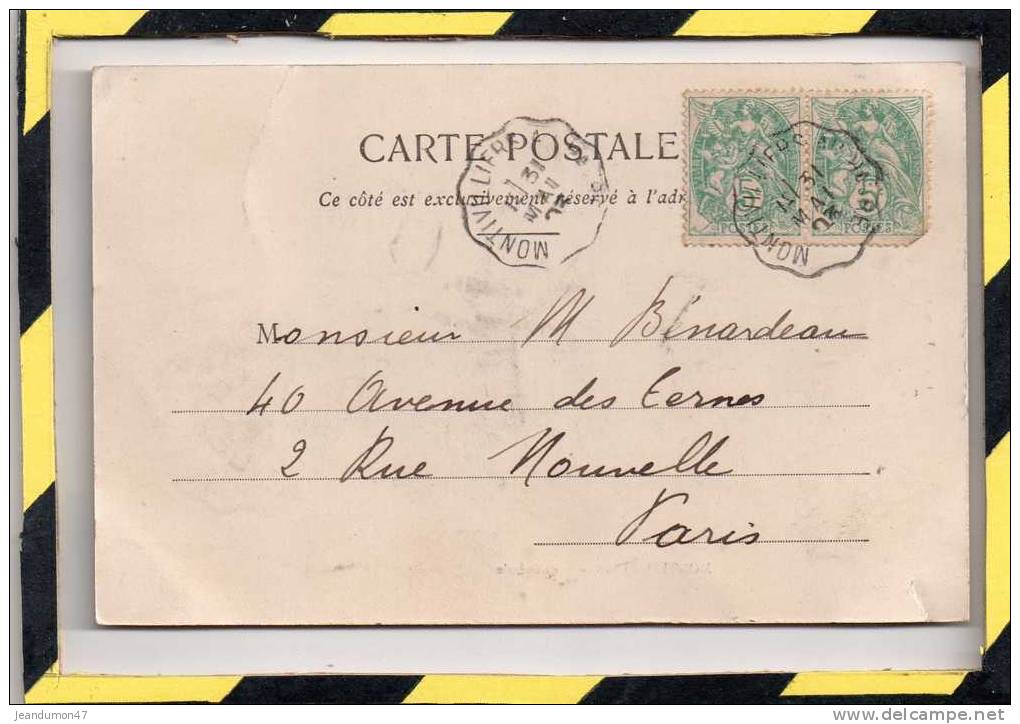 CARTE POSTALE
Ce côté est exclusivement réservé à l'adr
MONTIVILLIERS
31
MAI
03
MONTIVILLIERS
31
MAI
03
POSTES
POSTES
Monsieur M Bénardeau
40 Avenue des Ternes
2 Rue Nouvelle
Paris
jeandumon47
delcampe.net